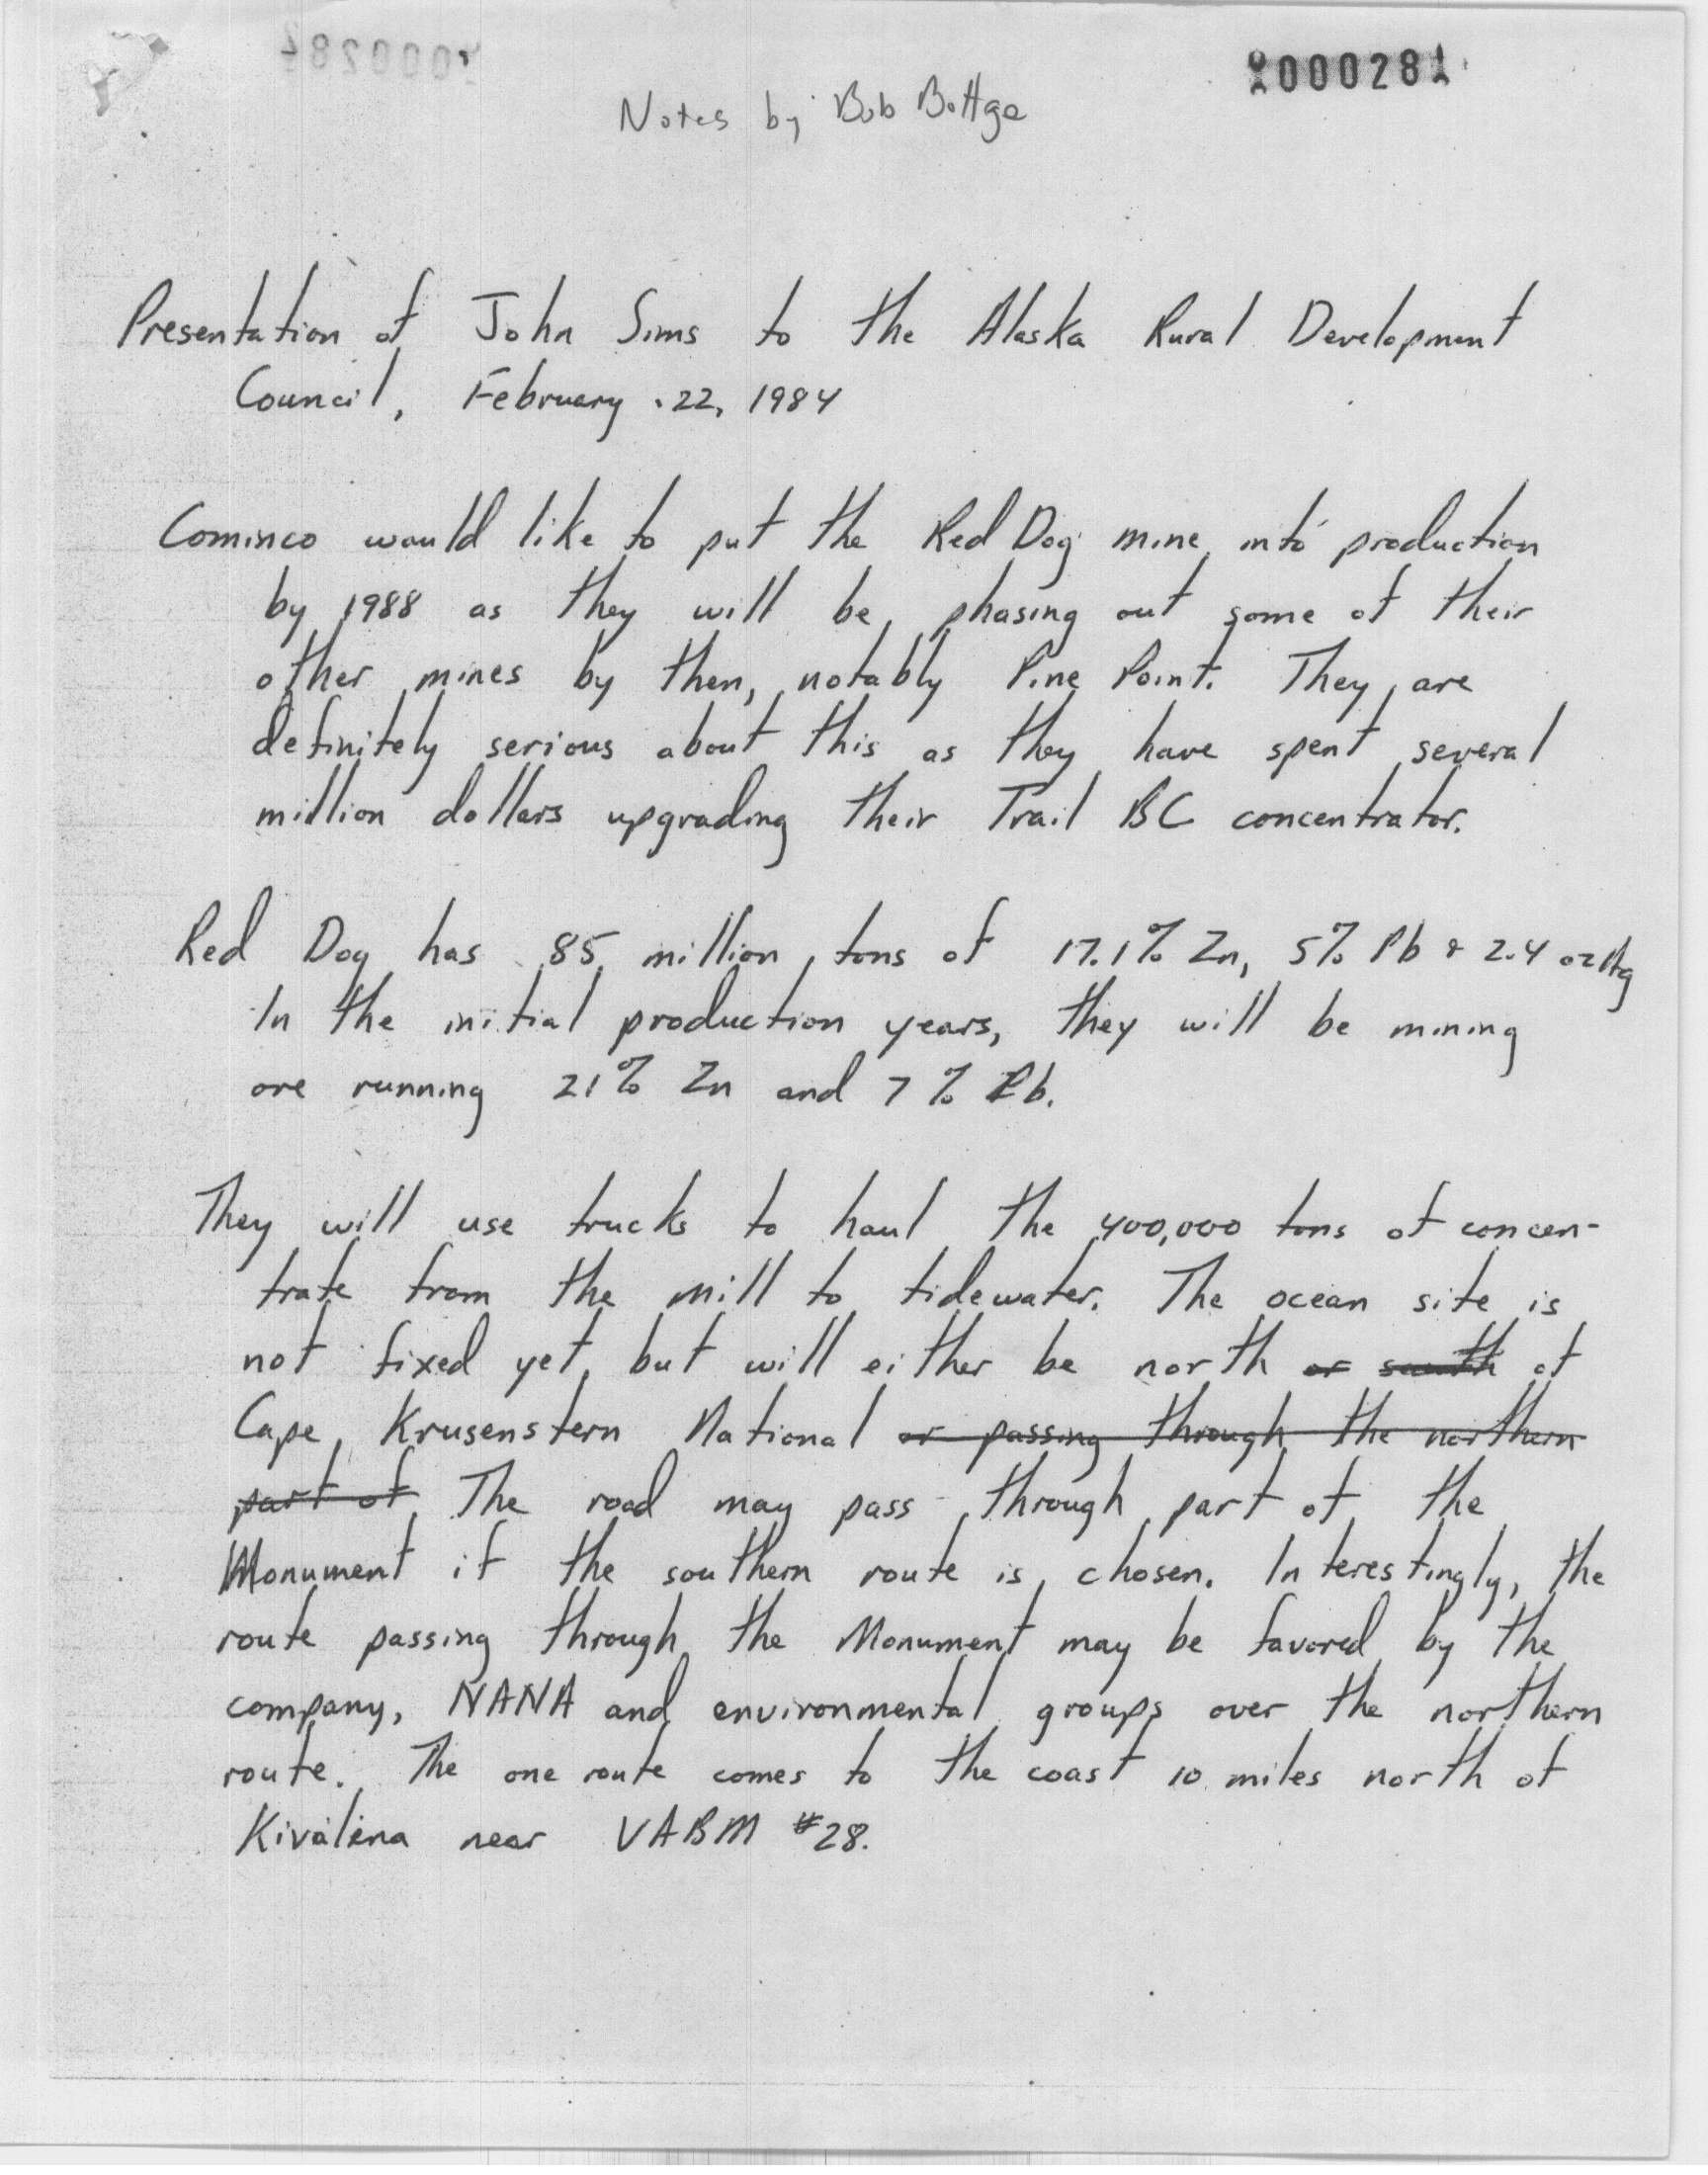 1000281
Notes by Bob Bottge
Presentation of John Sims to the Alaska Rural Development
Council, February 22, 1984
Cominco would like to put the Red Dog mine into production
by 1988 as they will be phasing out some of their
other mines by then, notably Pine Point. They are
definitely serious about this as they have spent several
million dollars upgrading their Trail BC concentrator.
Red Dog has 85 million tons of 17.1% Zn, 5% Pb & 2.4 oz Ag
In the initial production years, they will be mining
ore running 21% Zn and 7% Pb.
They will use trucks to haul the 400,000 tons of concen-
trate from the mill to tidewater. The ocean site is
not fixed yet, but will either be north or south of
Cape Krusenstern National or passing through the northern
part of The road may pass through part of the
Monument if the southern route is chosen. Interestingly, the
route passing through the Monument may be favored by the
company, NANA and environmental groups over the northern
route. The one route comes to the coast 10 miles north of
Kivalena near VABM #28.